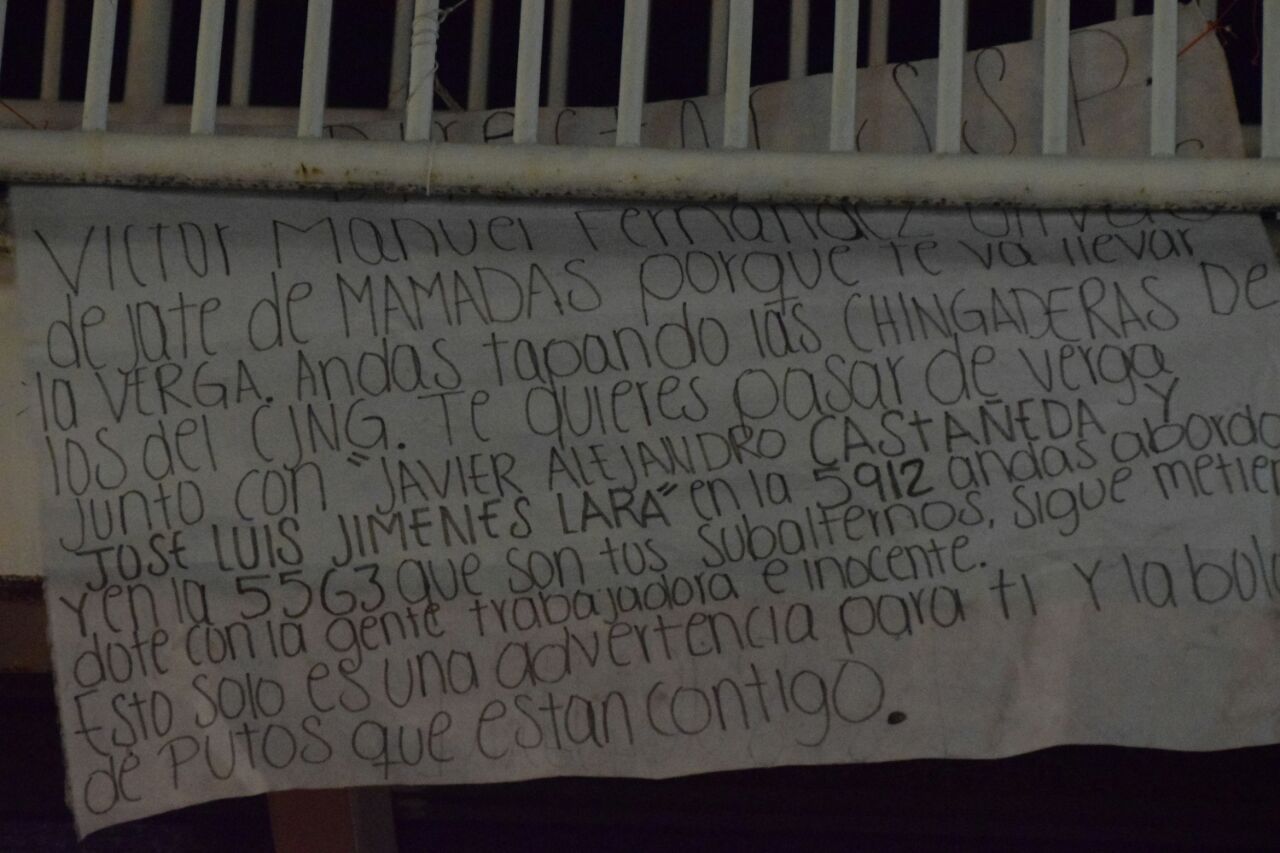 Director SSP
Victor Manuel Fernandez
dejate de MAMADAS porque te va llevar
la VERGA. Andas tapando las CHINGADERAS DE
los del CJNG. Te quieres pasar de verga
junto con "JAVIER ALEJANDRO CASTAÑEDA Y
JOSE LUIS JIMENES LARA" en la 5912 andas abordo
Y en la 55G3 que son tus subalternos. sigue metien
dote con la gente trabajadora e inocente.
Esto solo es una advertencia para ti Y la bola
de PUTOS que estan contigo.